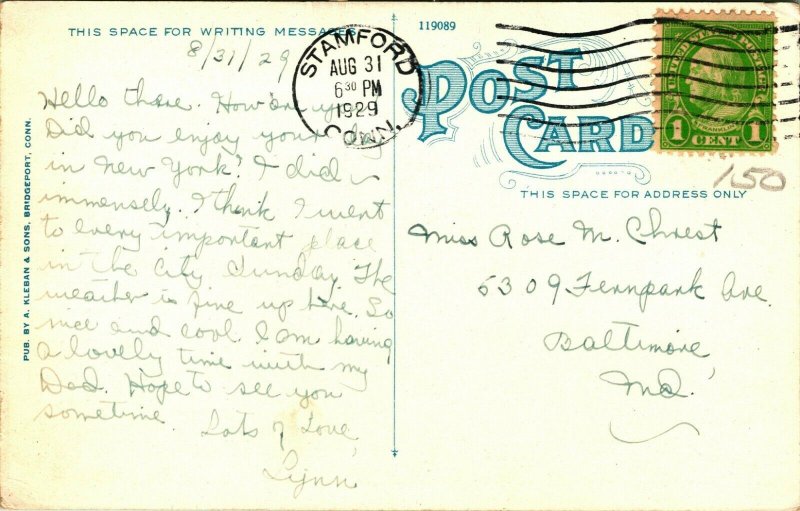 THIS SPACE FOR WRITING MESSAGES
8/31/29
Hello there. How are you.
Did you enjoy your
in New York? I did
immensely. I think I went
to every important place
in the city Sunday. The
weather is fine up here. So
nice and cool. I am having
a lovely time with my
Dad. Hope to see you
sometime.
Lots of Love
Lynn
PUB. BY A. KLEBAN & SONS, BRIDGEPORT, CONN.
119089
STAMFORD
AUG 31
6 30 PM
1929
CONN.
POST
CARD
UNITED STATES POSTAGE
FRANKLIN
1 CENT 1
150
THIS SPACE FOR ADDRESS ONLY
Miss Rose M. Chrest
5309 Fernpark Ave.
Baltimore
Md.